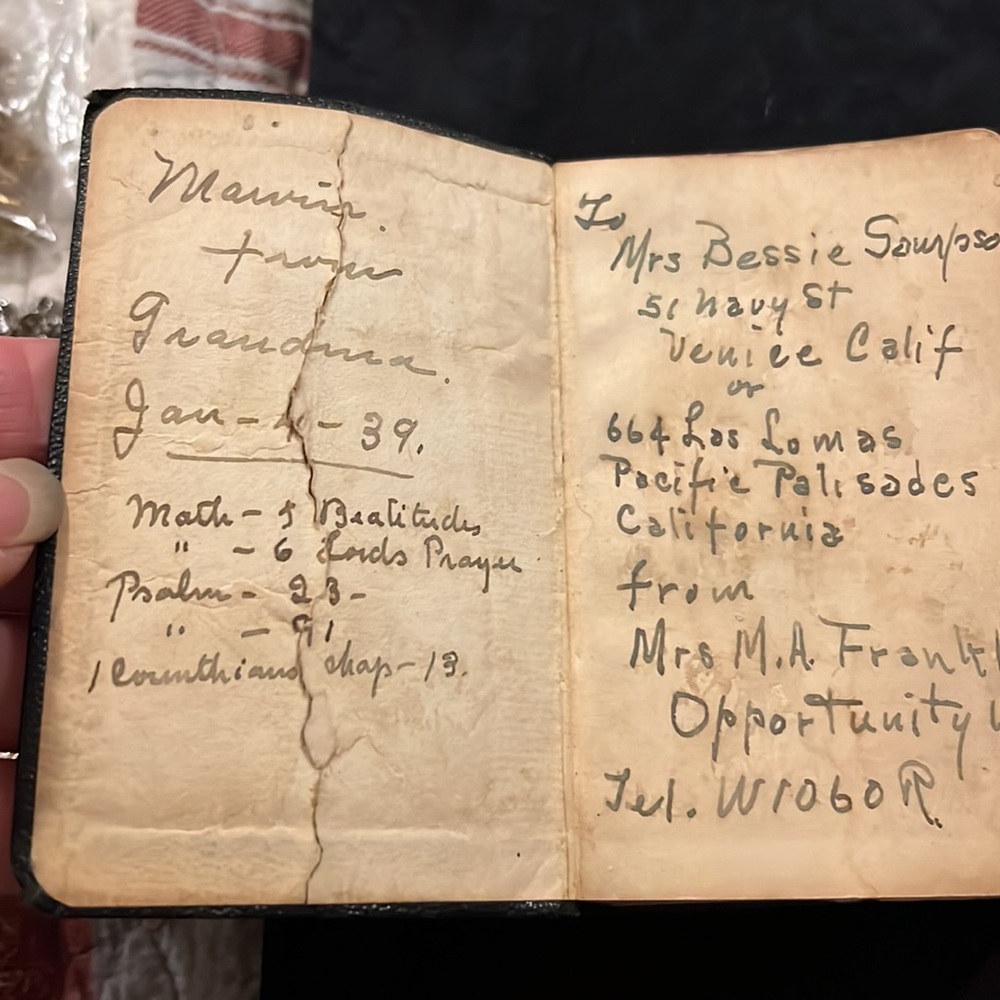 Marvin.
from
Grandma.
Jan - 4 - 39.
Math - 5 Beatitudes
" - 6 Lords Prayer
Psalm - 23 -
" - 91
1 Corinthians chap - 13.
To
Mrs Bessie
51 Navy St
Venice Calif
or
664 Las Lomas
Pacific Palisades
California
from
Mrs M.A.
Opportunity
Tel. W1060R.